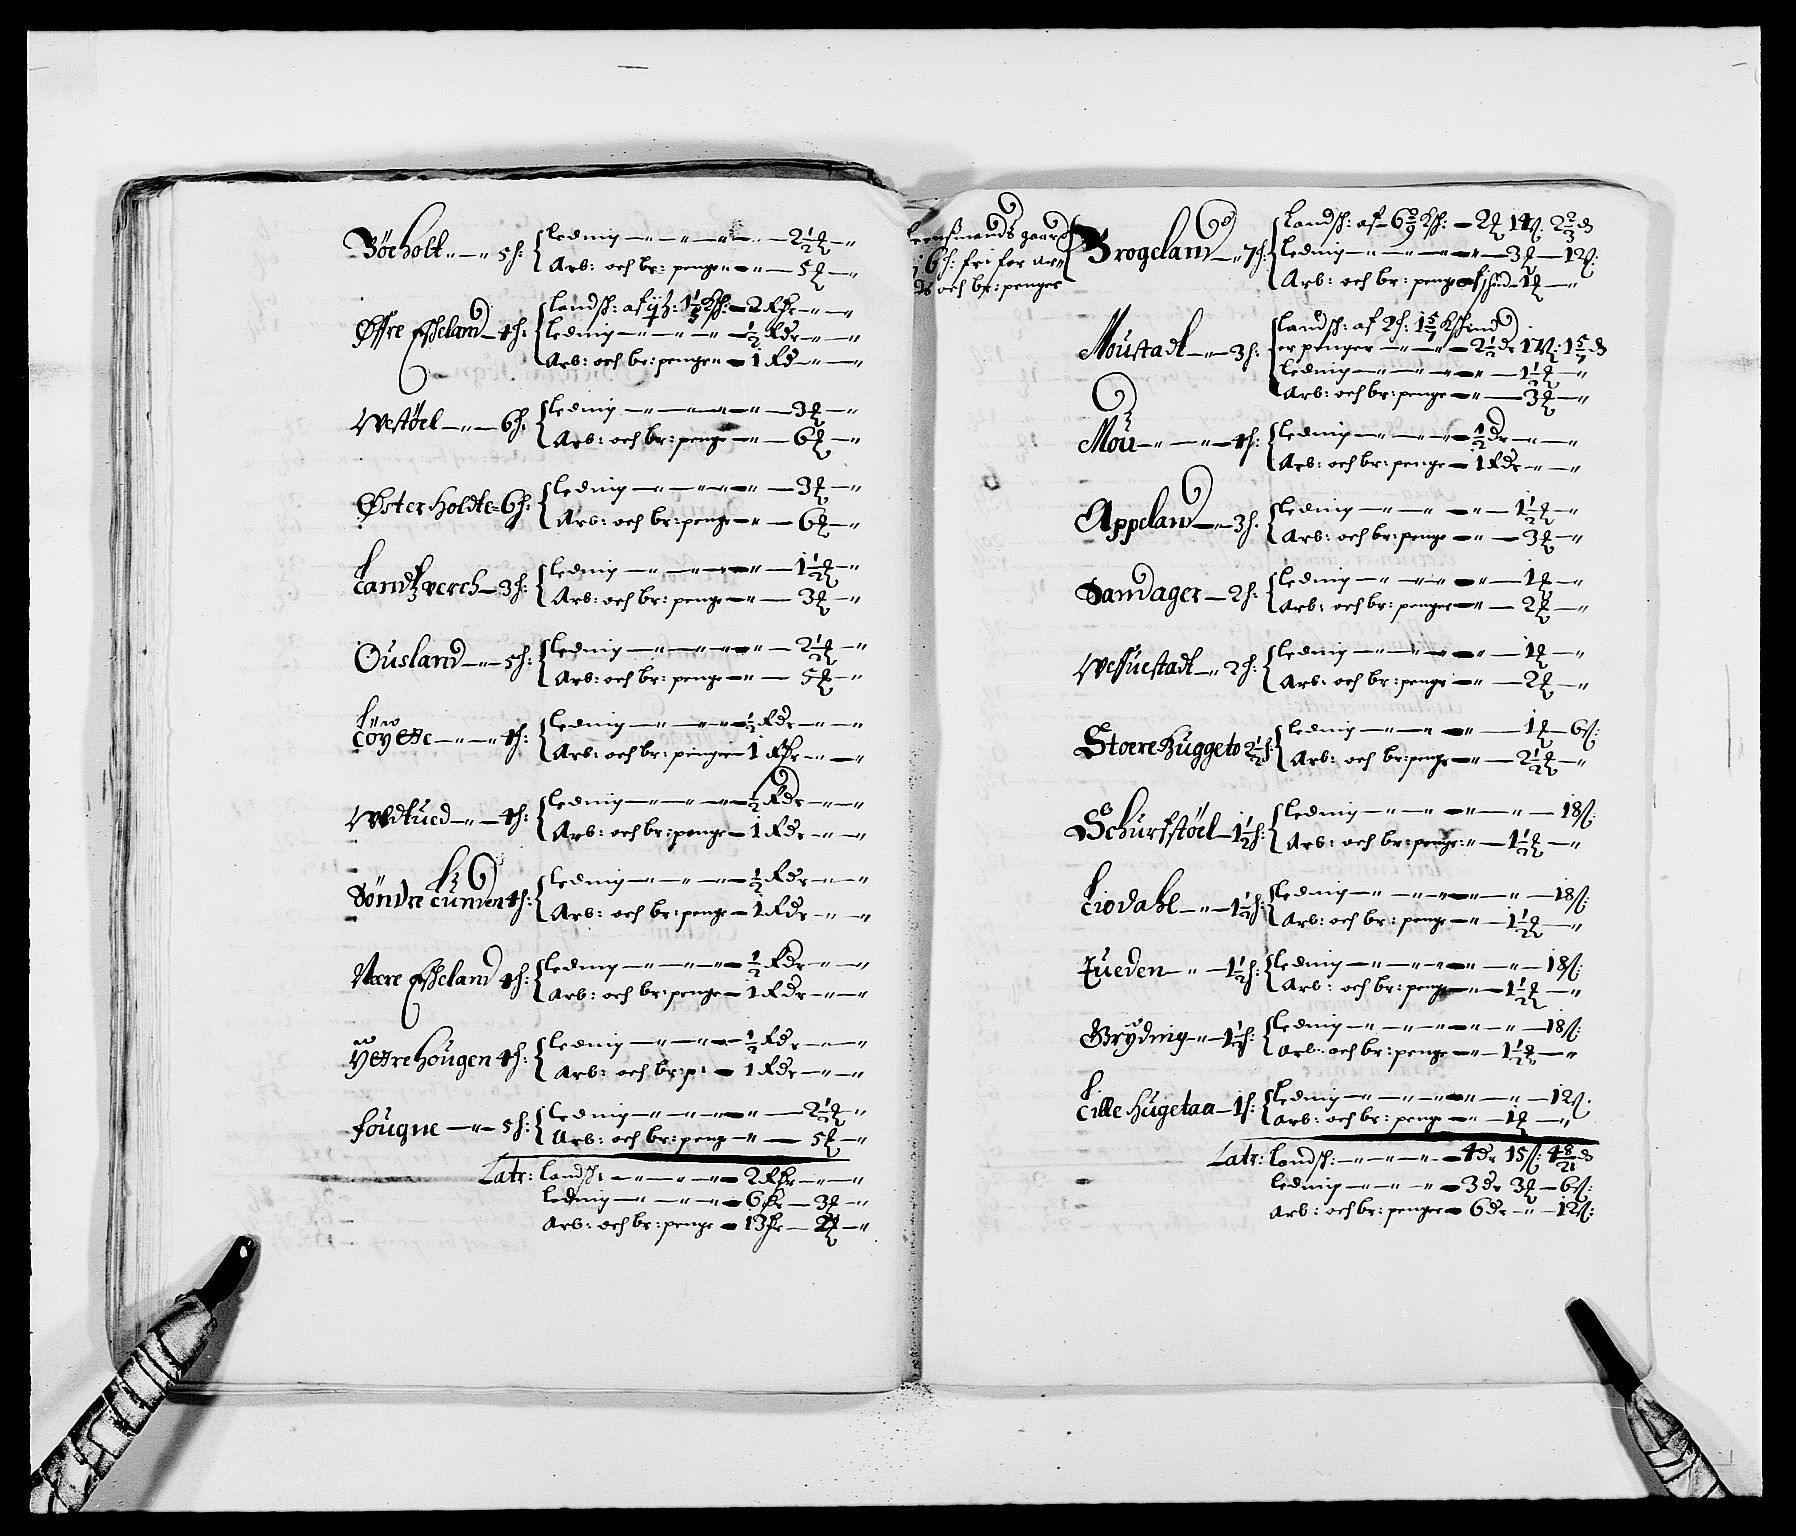 Böeholt - " - 5 h: Ledning - " - " - " - 2½ ƶ - "
Arb: och br: penge - " - 5 ƶ - "
Øffre Esseland - 4 h: Landsh: af - 2 Rdr - " - "
Ledning - " - " - " - ½ Rdr - " - "
Arb: och br: penge " - 1 Rd - " - "
Westöel - " - 6 h: Ledning - " - " - " - 3 ƶ - "
Arb: och br: penge - " - 6 ƶ - "
Øster holdte - 6 h: Ledning - " - " - " - 3 ƶ - "
Arb: och br: penge - " - 6 ƶ - "
Landtzverch - 3 h: Ledning - " - " - " - 1½ ƶ - "
Arb: och br: penge - " - 3 ƶ - "
Ousland - " - 5 h: Ledning - " - " - " - 2½ ƶ - "
Arb: och br: penge - " - 5 ƶ - "
- 4 h: Ledning - " - " - " - ½ Rdr - " - "
Arb: och br: penger - 1 Rdr - " - "
- 4 h: Ledning - " - " - " - ½ Rdr - " - "
Arb: och br: penge - 1 Rdr - " - "
Söndre Lunden 4 h: Ledning - " - " - " - ½ Rdr - " - "
Arb: och br: penge - 1 Rdr - " - "
Nere Esseland 4 h: Ledning - " - " - " - ½ Rdr - " - "
Arb: och br: penge - 1 Rdr - " - "
Yttre Hougen 4 h: Ledning - " - " - " - ½ Rdr - " - "
Arb: och br: p: - 1 Rdr - " - "
fougne - " - 5 h: Ledning - " - " - " - 2½ ƶ - "
Arb: och br: peng - " - 5 ƶ - "
Latr: Landsh: - " - " - " - 2 Rdr - " - "
Ledning - " - " - " - 6 Rdr - 3 ƶ - "
Arb: och br: penge - 13 Rdr - 2 ƶ - "
Leensmands gaard
6 h: fri for ar
och br: penger
Brogeland - " 7 h: Landsh: af 6 2/9 - 2 ƶ 14 ß: 2 2/3 d
Ledning - " - " - " - 3 ƶ - 12 ß:
Arb: och br: penge af - 1 ƶ - "
Moustadt - " - 3 h: Landsh: af 2 h: 1 5/7
er penger - " - " - 2½ dr 1 5/7 d
Ledning - " - " - " - 1½ ƶ - "
Arb: och br: penge - " - 3 ƶ - "
Mou - " - " - 4 h: Ledning - " - " - " - ½ dr - " - "
Arb: och br: penge - 1 Rdr - " - "
Appeland - " - 3 h: Ledning - " - " - " - 1½ ƶ - "
Arb: och br: penge - " - 3 ƶ - "
Sandager - 2 h: Ledning - " - " - " - 1 ƶ - "
Arb: och br: penger - " - 2 ƶ - "
Wessuestadt - " 2 h: Ledning - " - " - " - 1 ƶ - "
Arb: och br: penge - " - 2 ƶ - "
Stoere Huggeto 2½ h: Ledning - " - " - " - 1 ƶ - 6 ß:
Arb: och br: penge - " - 2½ ƶ - "
Schurfstöel - 1½ h: Ledning - " - " - " - " - 18 ß:
Arb: och br: penge: " - 1½ ƶ - "
Liodahl - " - 1½ h: Ledning - " - " - " - " - 18 ß:
Arb: och br: penge - " - 1½ ƶ - "
Tueden - " - 1½ h: Ledning - " - " - " - " - 18 ß:
Arb: och br: penge - " - 1½ ƶ - "
Gryding - " - 1½ h: Ledning - " - " - " - " - 18 ß:
Arb: och br: penge - " - 1½ ƶ - "
Lille Hugetaa - 1 h: Ledning - " - " - " - " - 12 ß.
Arb: och br: penge - " - 1 ƶ - "
Latr: Landsh: - " - " - " - 4 dr 15 ß: 4 8/21 d
Ledning - " - " - " - 3 dr 3 ƶ - 6 ß:
Arb: och br: penger - 6 dr - " - 12 ß: